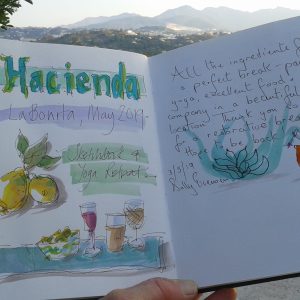 Hacienda
La Bonita, May 2019
Sketchbook &
Yoga Retreat
All the ingredients for
a perfect break - 
yoga, excellent food &
company in a beautiful
location. Thank you
for a restorative break
Hope to be back
3/5/19
Sally